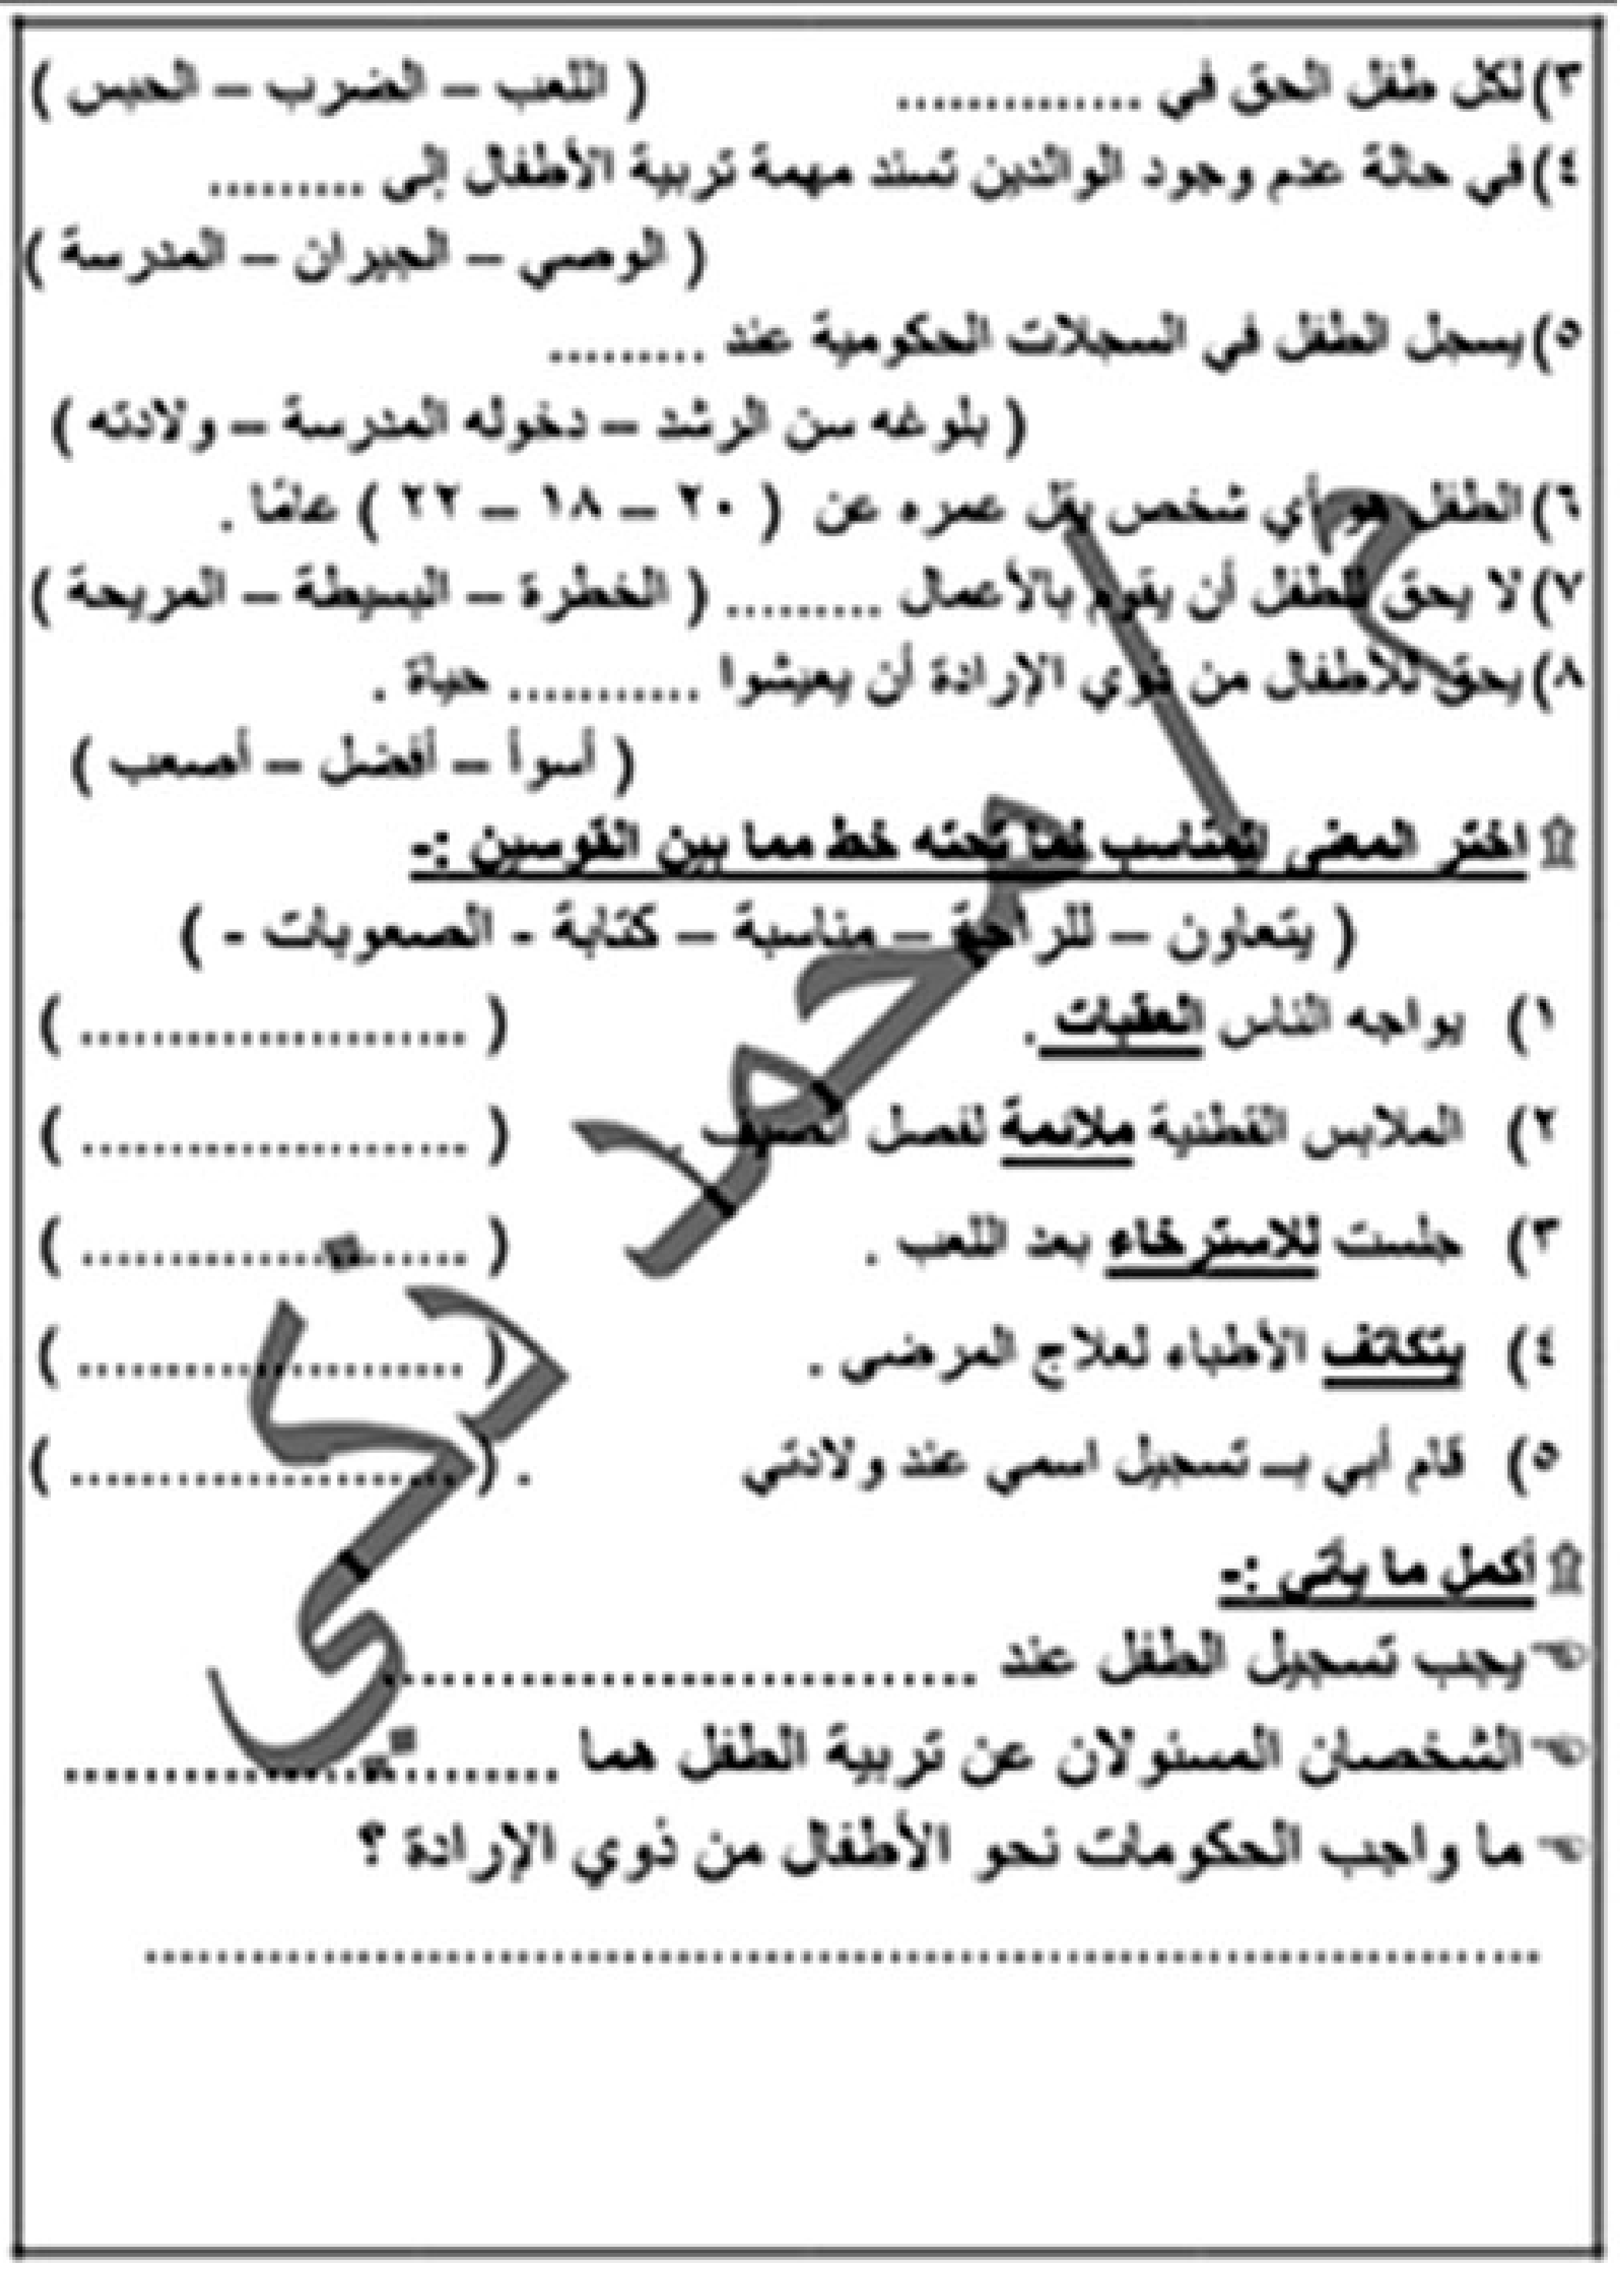 ٣) لكل طفل الحق في .............. ( اللعب – الضرب – الحبس )
٤) في حالة عدم وجود الوالدين تسند مهمة تربية الأطفال إلى .........
( الوصي – الجيران – المدرسة )
٥) يسجل الطفل في السجلات الحكومية عند .........
( بلوغه سن الرشد – دخوله المدرسة – ولادته )
٦) الطفل هو أي شخص يقل عمره عن ( ٢٠ – ١٨ – ٢٢ ) عامًا .
٧) لا يحق للطفل أن يقوم بالأعمال ......... ( الخطرة – البسيطة – المريحة )
٨) يحق للأطفال من ذوي الإرادة أن يعيشوا ........... حياة .
( أسوأ – أفضل – أصعب )
اختر المعنى المناسب لما تحته خط مما بين القوسين :-
( يتعاون – للراحة – مناسبة – كتابة - الصعوبات - )
١) يواجه الناس العقبات . ( ...................... )
٢) الملابس القطنية ملائمة لفصل الصيف . ( ...................... )
٣) جلست للاسترخاء بعد اللعب . ( ...................... )
٤) يتكاتف الأطباء لعلاج المرضى . ( ...................... )
٥) قام أبي بـ تسجيل اسمي عند ولادتي . ( ...................... )
أكمل ما يأتي :-
يجب تسجيل الطفل عند ..............................
الشخصان المسئولان عن تربية الطفل هما .........................
ما واجب الحكومات نحو الأطفال من ذوي الإرادة ؟
................................................................................